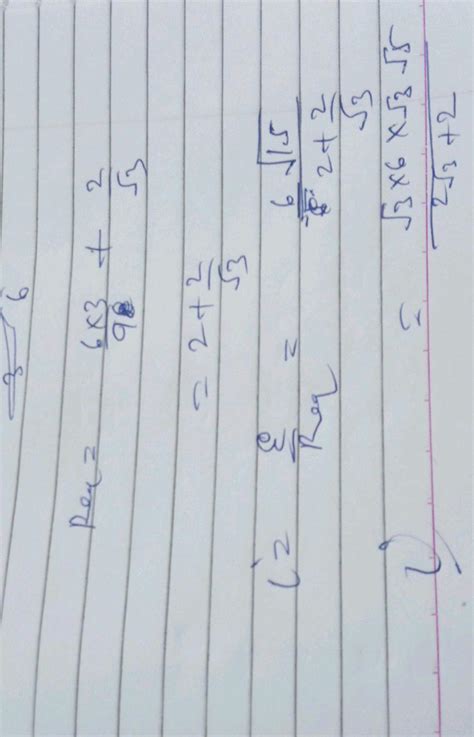 6
3
Req = 6×3/9 + 2/√3
= 2 + 2/√3
i = ε/Req = 6√15 / 2 + 2/√3
i = √3 × 6 × √3 √5 / 2√3 + 2